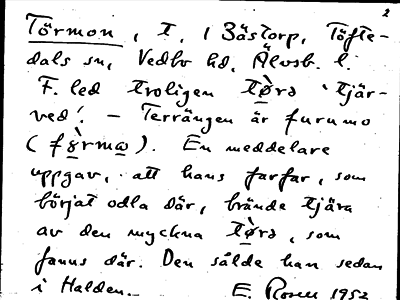 2
Törmon, t, i Båstorp, Töfte-
dals sn, Vedbo hd, Älvsb. l.
F. led troligen tø̀rə 'tjär-
ved'. – Terrängen är furumo
(fø̀rmɷ). En meddelare
uppgav, att hans farfar, som
börjat odla där, brände tjära
av den myckna tø̀rə, som
fanns där. Den sålde han sedan
i Halden. – E. Rosen 1952